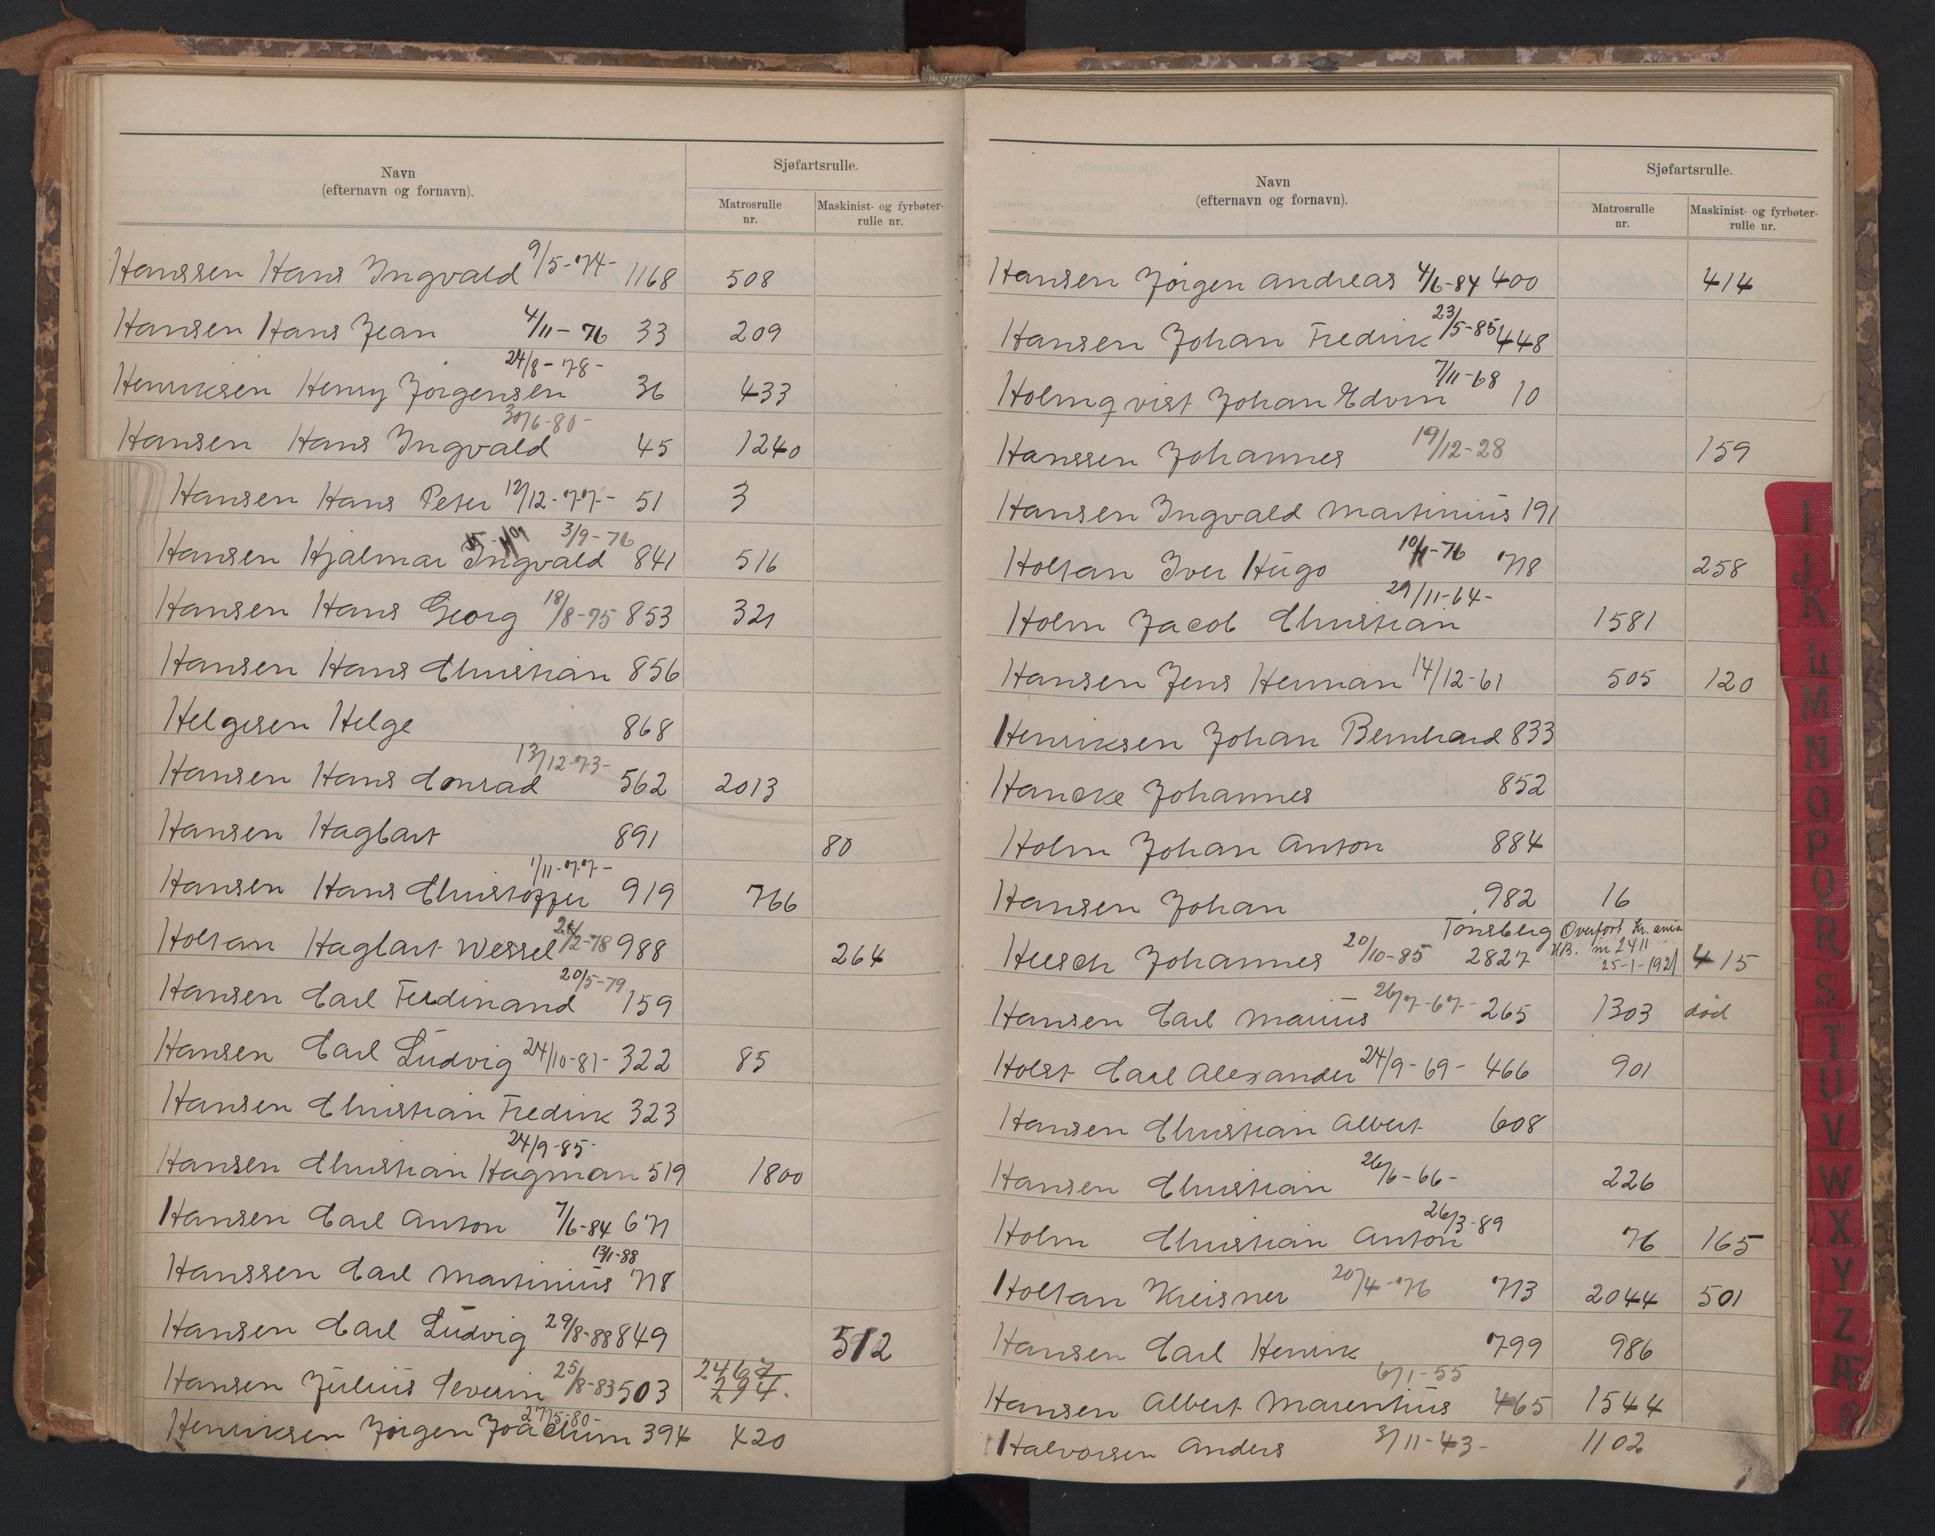 Navn
(efternavn og fornavn).
Sjøfartsrulle.
Matrosrulle nr.
Maskinist- og fyrbøter-rulle nr.
Hanssen Hans Ingvald 9/5-74- 1168 508
Hansen Hans Jean 4/11-76 33 209
Henriksen Henry Jörgensen 24/8-78- 36 433
Hansen Hans Ingvald 30/6-80- 45 1240
Hansen Hans Peter 12/12-77- 51 3
Hansen Hjalmar Ingvald 3/9-76 841 516
Hansen Hans Georg 18/8-75 853 321
Hansen Hans Christian 856
Helgesen Helge 868
Hansen Hans Conrad 13/12-73- 562 2013
Hansen Hagbart 891 80
Hansen Hans Christoffer 1/11-77- 919 766
Holtan Hagbart Wessel 24/2-78 988 264
Hansen Carl Ferdinand 20/5-79 159
Hansen Carl Ludvig 24/10-81- 322 85
Hansen Christian Fredrik 323
Hansen Christian Hagman 24/9-85- 519 1800
Hansen Carl Anton 7/6-84 671
Hanssen Carl Martinius 13/1-88 718
Hansen Carl Ludvig 29/8-88 849 512
Hansen Julius Severin 25/8-83 503 2467 294.
Henriksen Jörgen Joachum 27/5-80- 394 420
Navn
(efternavn og fornavn).
Sjøfartsrulle.
Matrosrulle nr.
Maskinist- og fyrbøter-rulle nr.
Hansen Jörgen Andreas 4/6-84 400 414
Hansen Johan Fredrik 23/5-85 448
Holmqvist Johan Edvin 7/11-68 10
Hanssen Johannes 19/12-28 159
Hansen Ingvald Martinius 191
Holtan Iver Hugo 10/11-76 718 258
Holm Jacob Christian 29/11-64- 1581
Hansen Jens Herman 14/12-61 505 120
Henriksen Johan Bernhard 833
Hancke Johannes 852
Holm Johan Anton 884
Hansen Johan 982 16
Heesch Johannes 20/10-85 Tönsberg 2827 Overfört Kr.ania H.B. nr 2411 25-1-1921 415
Hansen Carl Marius 26/7-67- 265 1303 död
Holst Carl Alexander 24/9-69- 466 901
Hansen Christian Albert 608
Hansen Christian 26/6-66- 226
Holm Christian Anton 26/3-89 76 165
Holtan Kreisner 20/4-76 713 2044 501
Hansen Carl Henrik 799 986
Hansen Albert Marentius 6/1-55 465 1544
Halvorsen Anders 3/11-43- 1102
I
J
K
L
M
N
O
P
Q
R
S
T
U
V
W
X
Y
Z
Æ
Ø